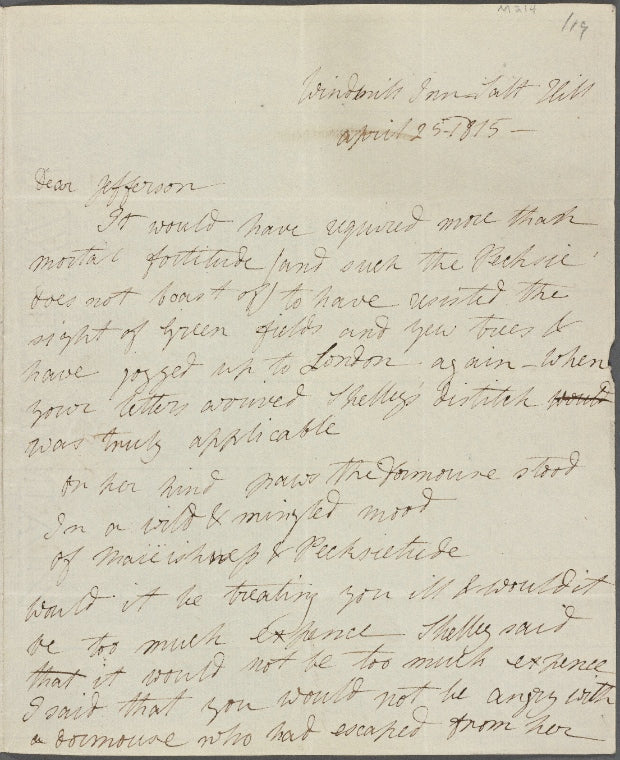 M214
119
Windmill Inn Salt Hill
april 25-1815-
Dear Jefferson
It would have required more than
mortal fortitude (and such the Pecksie
does not boast of) to have resisted the
sight of Green fields and yew trees &
have jogged up to London again - when
your letters arrived Shelley's distitch would
was truly applicable
On her hind paws the Dormouse stood
In a wild & mingled mood
of Maiëishness & Pecksietude
would it be treating you ill & would it
be too much expence Shelley said
that it would not be too much expence
I said that you would not be angry with
a dormouse who had escaped from her